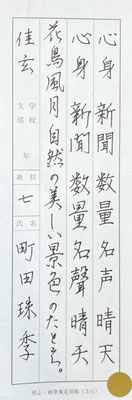 心身 新聞 数量 名声 晴天
心身 新聞 数量 名聲 晴天
花鳥風月自然の美しい景色のたとえ。
佳玄
支部 学校 年 級位 七 氏名 町田珠季